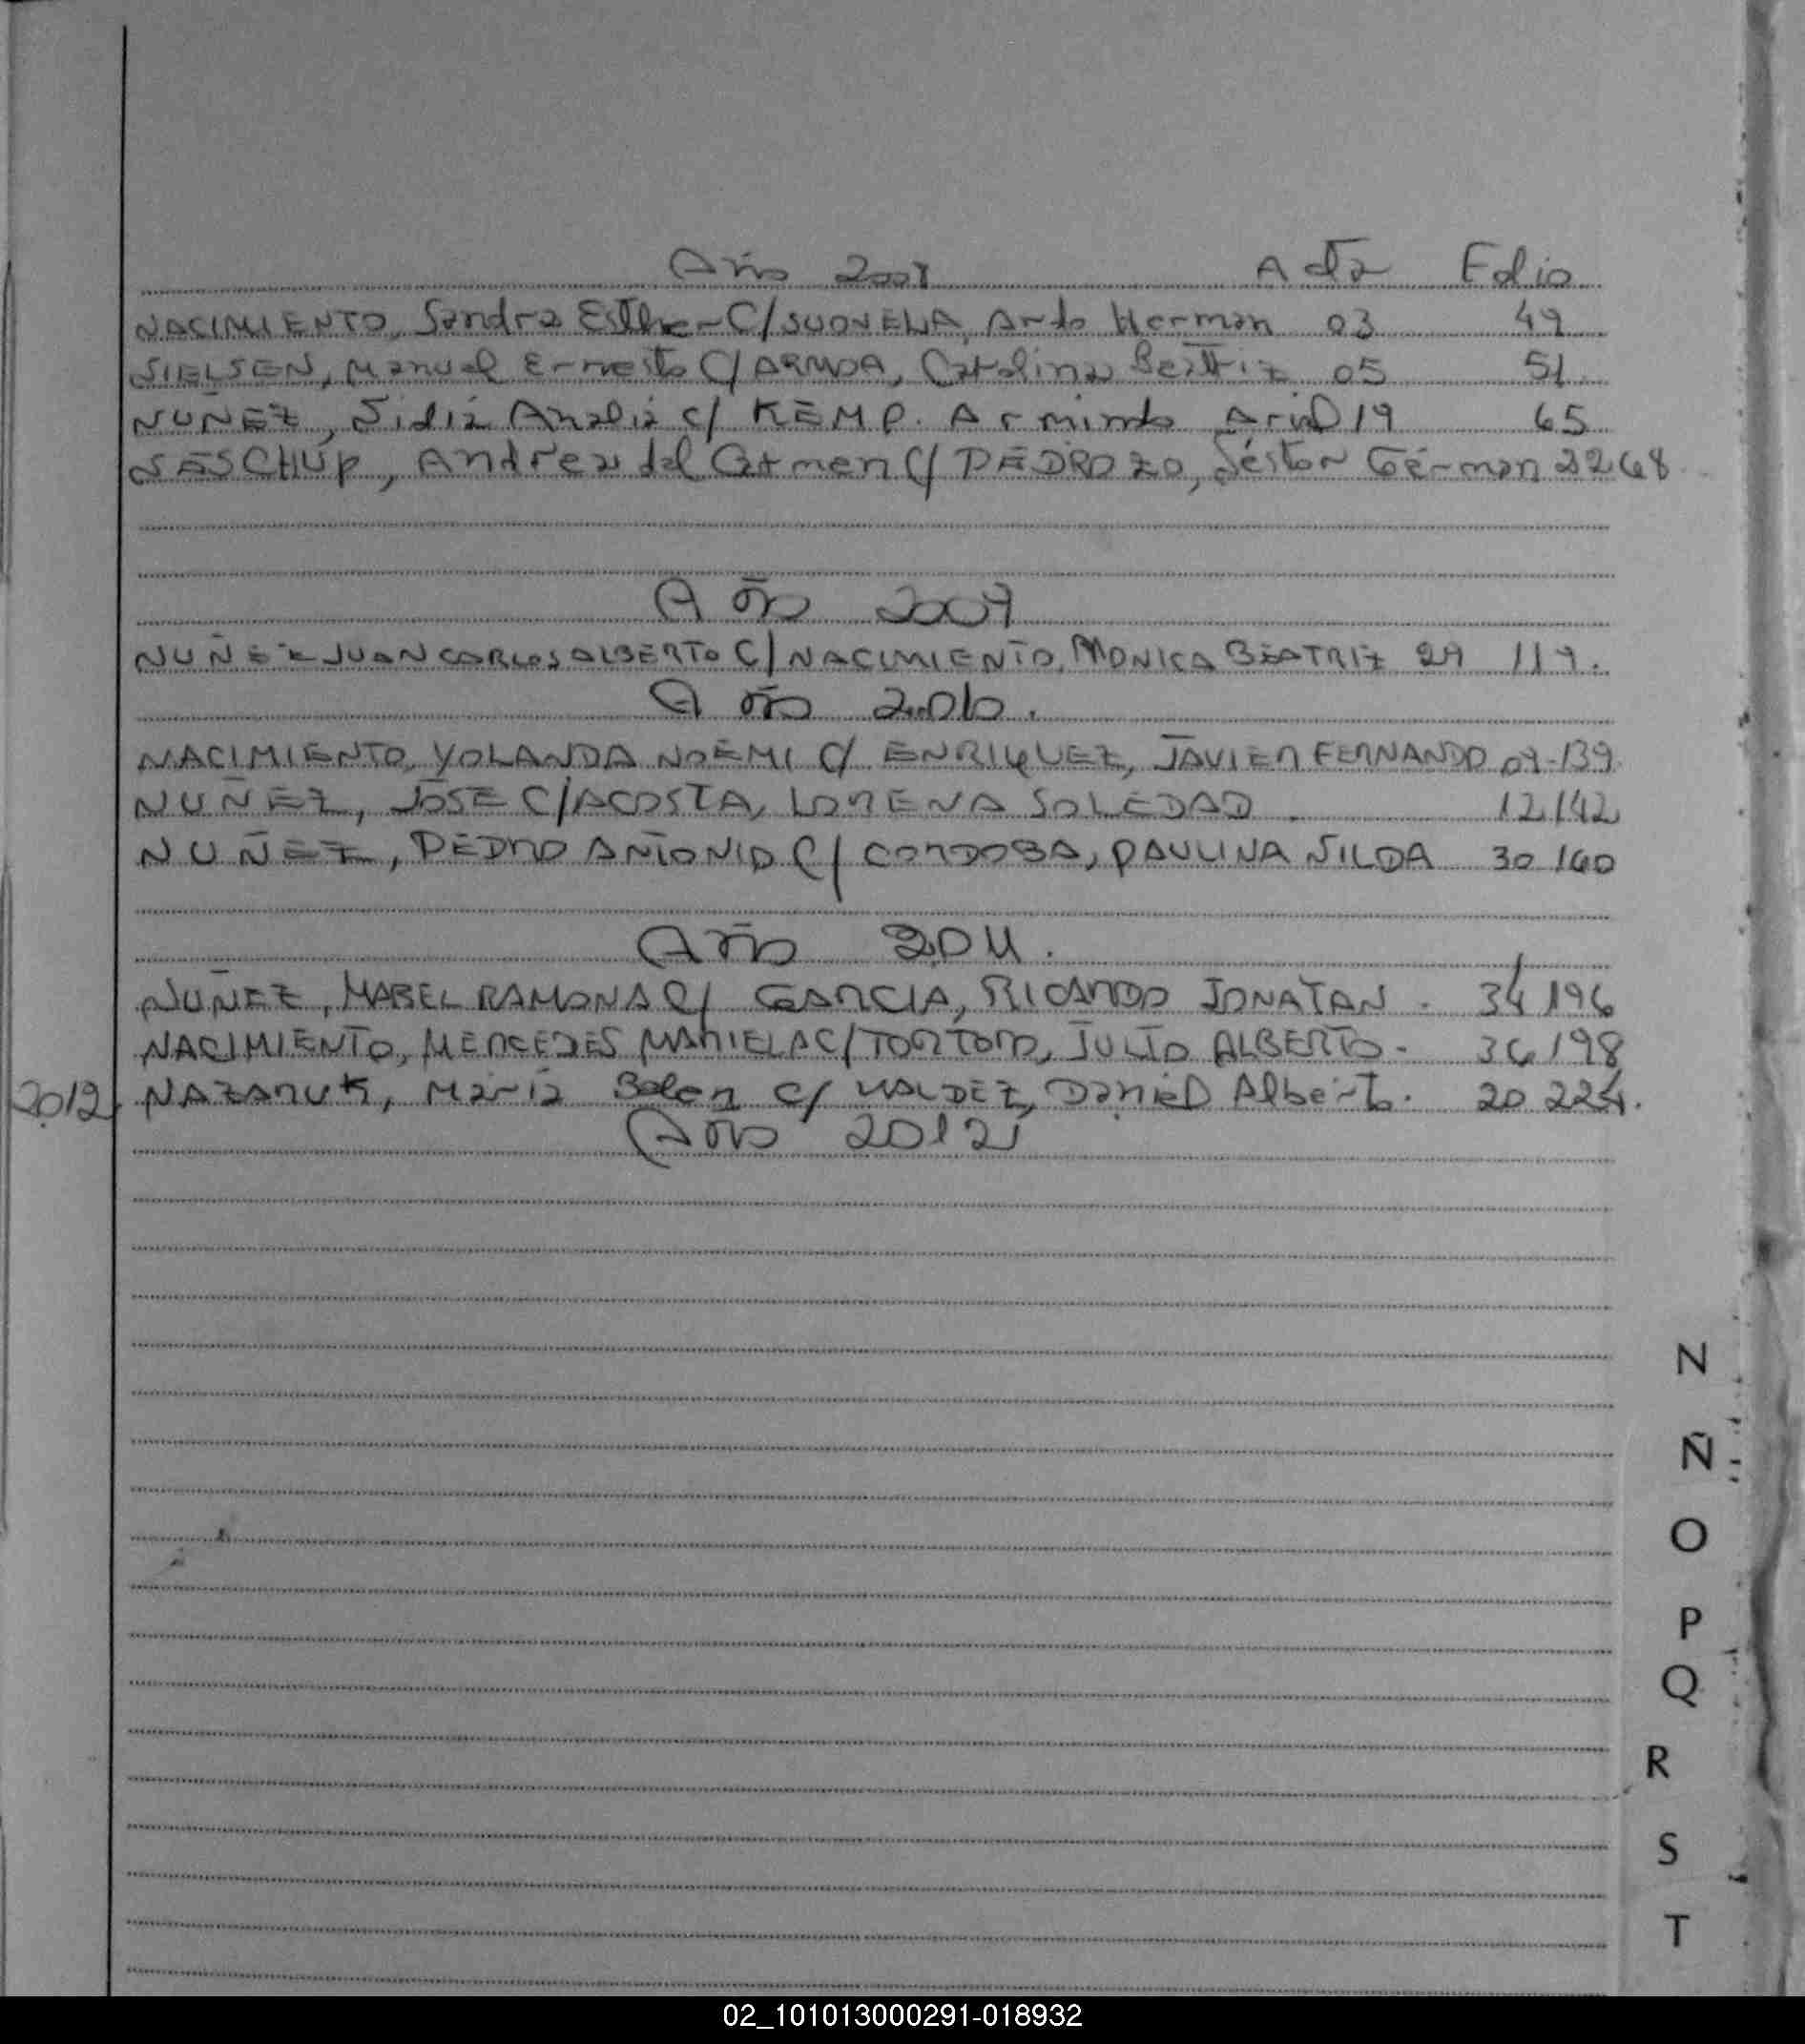 Año 2008 Acta Folio
NACIMIENTO, Sandra Esther C/ SUONELA, Arto Herman 03 49
NIELSEN, Manuel Ernesto C/ ARMOA, Catalina Beatriz 05 51
NUÑEZ, Nidia Analia c/ KEMP. Armindo Ariel 19 65
NESCHUK, Andrea del Carmen C/ PEDROZO, Néstor Germán 22 68
Año 2009
NUÑEZ JUAN CARLOS ALBERTO C/ NACIMIENTO, MONICA BEATRIZ 29 119.
Año 2010.
NACIMIENTO, YOLANDA NOEMI C/ ENRIQUEZ, JAVIER FERNANDO 09-139
NUÑEZ, JOSE C/ ACOSTA, LORENA SOLEDAD 12 142
NUÑEZ, PEDRO ANTONIO C/ CORDOBA, PAULINA NILDA 30 160
Año 2011.
NUÑEZ, MABEL RAMONA C/ GARCIA, RICARDO JONATAN. 34 196
NACIMIENTO, MERCEDES MARIELA C/ JULIO ALBERTO. 36 198
2012 NAZARUK, Maria Belen c/ VALDEZ, Daniel Alberto. 20 224.
Año 2012
N
Ñ
O
P
Q
R
S
T
02_101013000291-018932